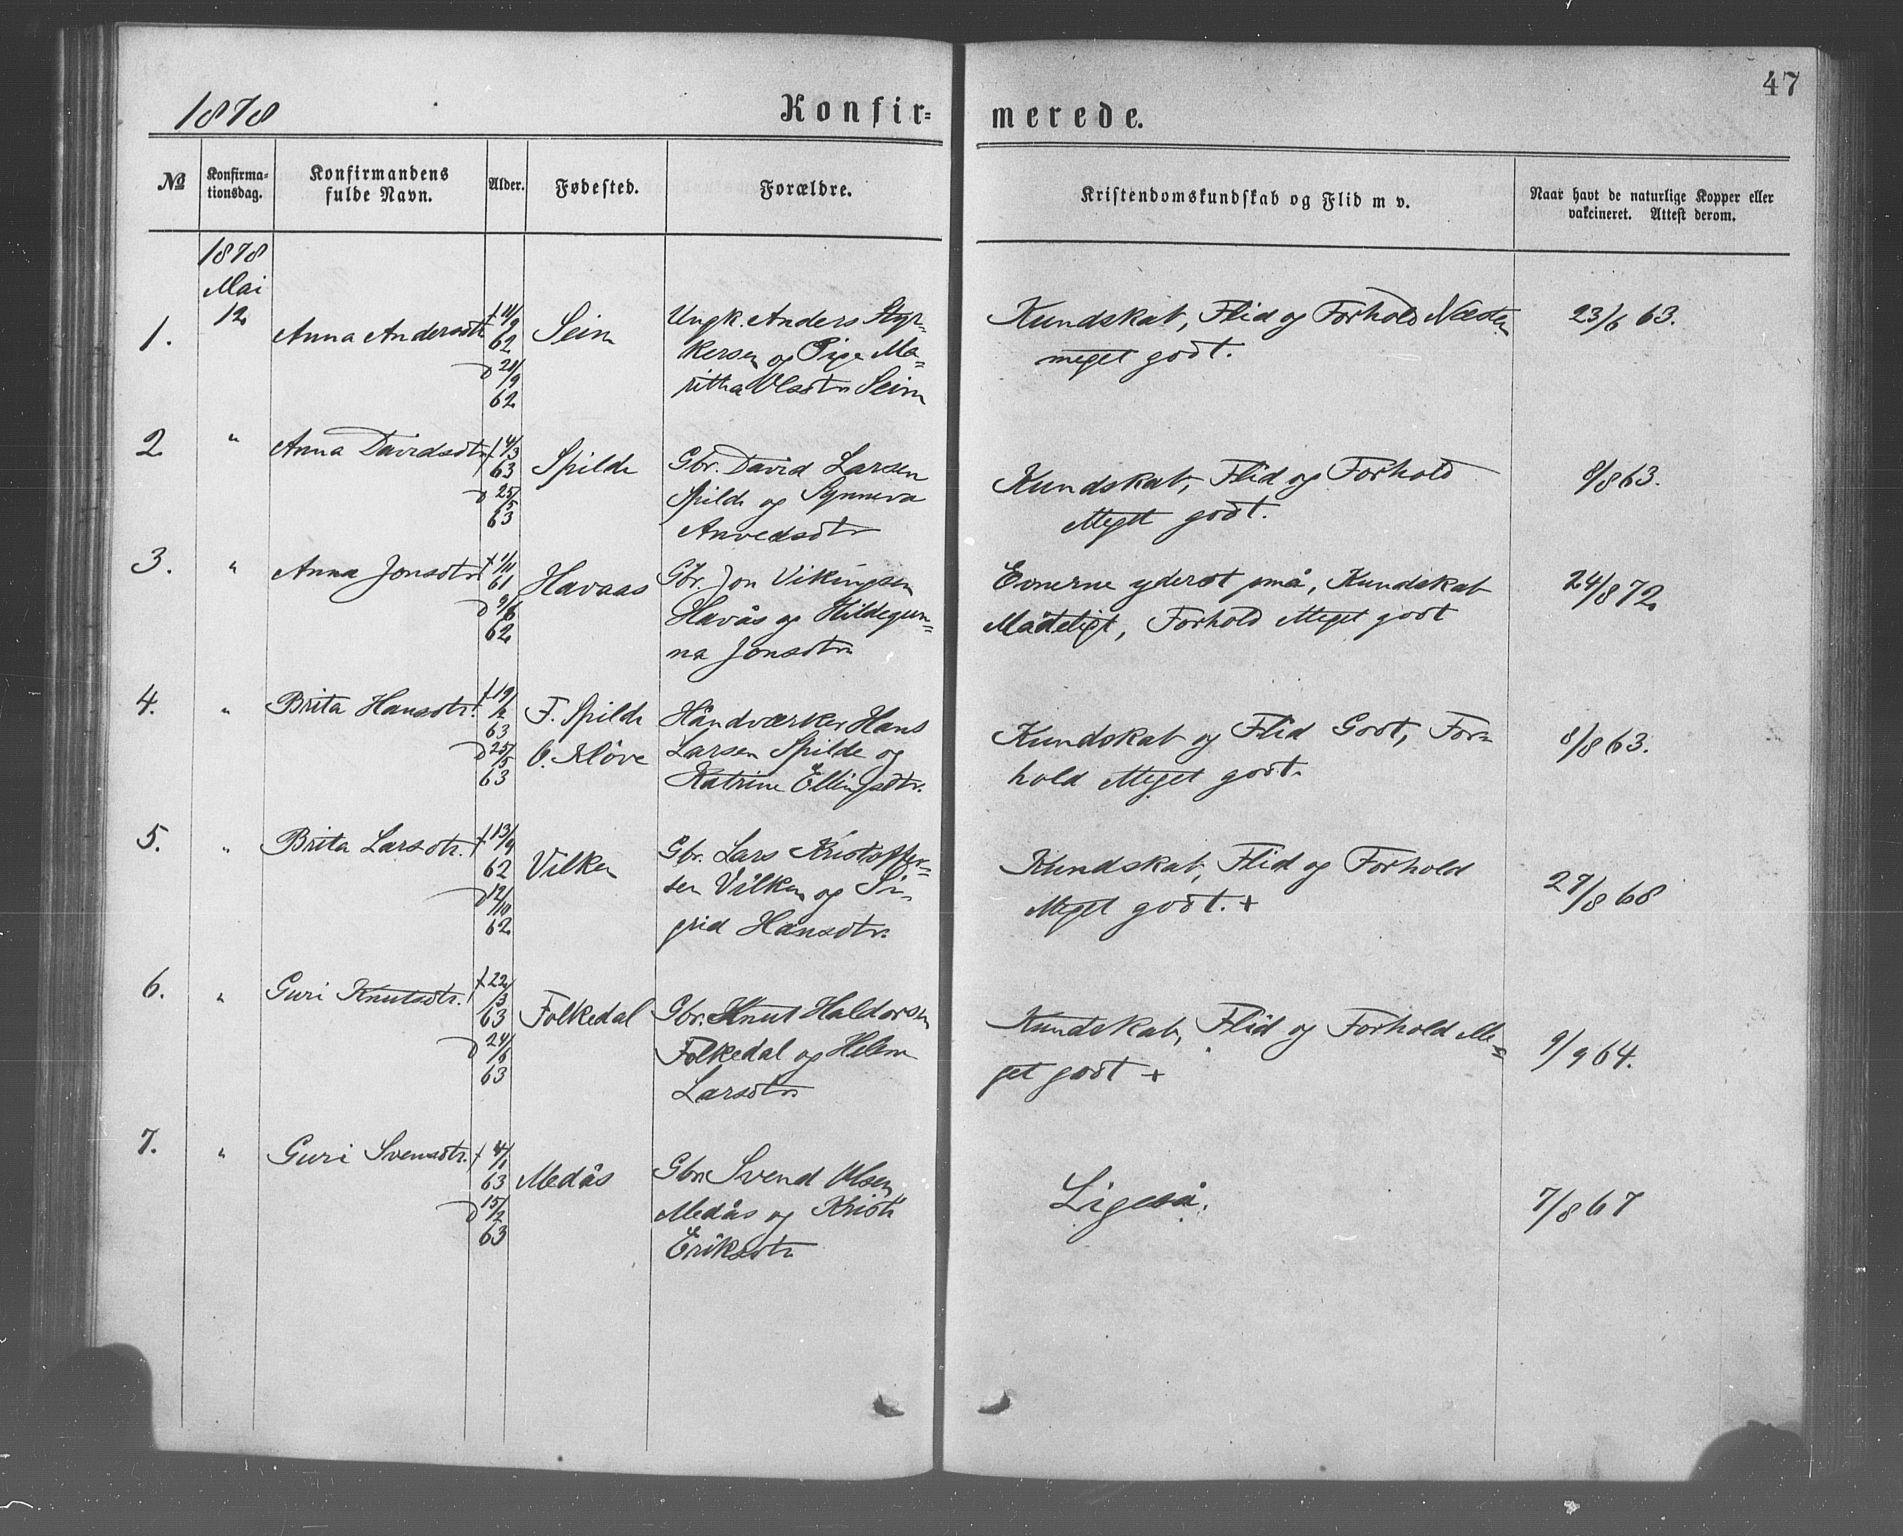 47
1878
Konfir=
merede.
No
Konfirma-
tionsdag.
Konfirmandens
fulde Navn.
Alder.
Fødested.
Forældre.
Kristendomskundskab og Flid m v.
Naar havt de naturlige Kopper eller
vakcineret. Attest derom.
1878
Mai
12
1.
Anna Andersdtr
f 11/9
62
D 21/9
62
Seim
Ungk. Anders Styr=
kersen og Pige Ma=
ritha Olsdtr Seim
Kundskab, Flid og Forhold Næsten
meget godt.
23/6 63.
2
"
Anna Davidsdtr
f 4/3
63
D 25/5
63
Spilde
Gbr. David Larsen
Spilde og Synneva
Anvedsdtr
Kundskab, Flid og Forhold
Meget godt.
8/8 63.
3.
"
Anna Jonsdtr
61
D 9/6
62
Havaas
Gbr. Jon Vikingsen
Havås og Hildegun=
na Jonsdtr
Evnerne yderst små, Kundskab
Mådeligt, Forhold Meget godt
24/8 72
4.
"
Brita Hansdtr.
f 19/2
63
D 25/5
63
F. Spilde
O. Kløve
Håndværker Hans
Larsen Spilde og
Katrine Ellingsdtr.
Kundskab og Flid Godt, For=
hold Meget godt.
8/8 63.
5.
"
Brita Larsdtr.
f 13/9
62
D 12/10
62
Vilken
Gbr. Lars Kristoffer=
sen Vilken og Si=
grid Hansdtr.
Kundskab, Flid og Forhold
Meget godt. +
27/8 68
6.
"
Guri Knutsdtr.
f 22/3
63
D 24/5
63
Folkedal
Gbr. Knut Haldorsen
Folkedal og Helene
Larsdtr
Kundskab, Flid og Forhold Me=
get godt +
9/9 64.
7.
"
Guri Svensdtr.
f 4/1
63
D 15/2
63
Medås
Gbr. Svend Olsen
Medås og Kristi
Eriksdtr
Ligeså.
7/8 67